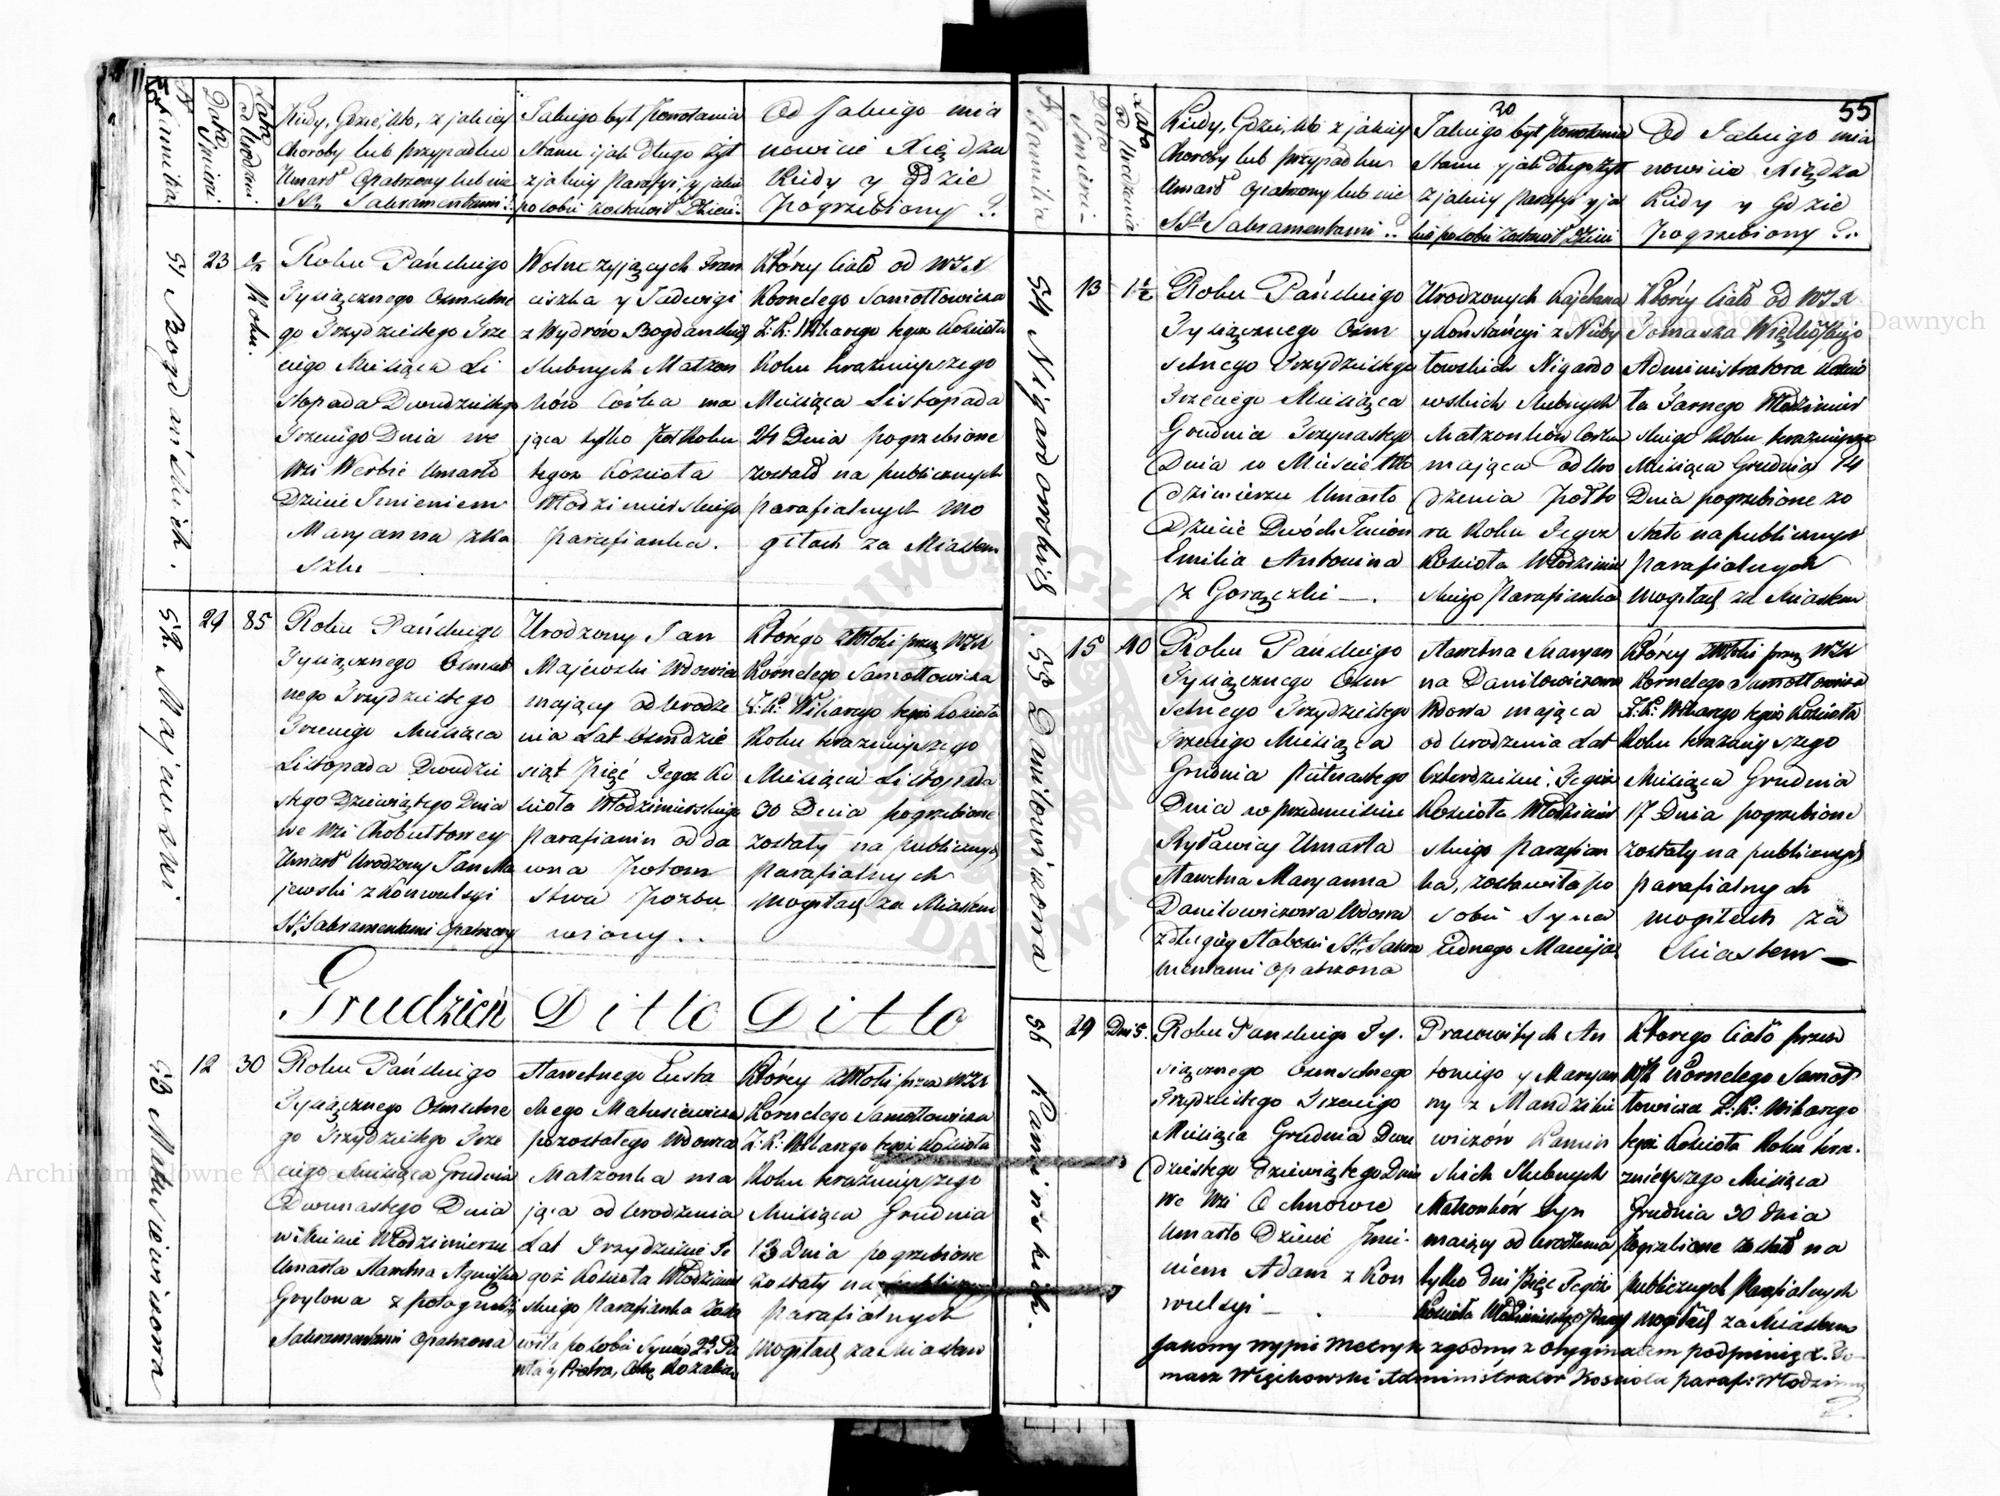 Kiedy, Gdzie, kto, z jakiey
Choroby lub przypadku
Umarł Opatrzony lub nie
SS. Sakramentami?
Jakiego był Powołania
Stanu i jak długo żył
z jakiey Parafyi, y jakie
po sobie zostawił Dzieci
Od Jakiego mia
nowicie Xiędza
Kiedy y gdzie
Pogrzebiony ?
51 Bogdańskich.
23
1/2 Roku.
Roku Pańskiego
Tysiącznego Ośmsetne
go Trzydziestego Trze
ciego Miesiąca Li
stopada Dwudziestego
Trzeciego Dnia we
Wsi Werbie Umarło
Dziecie Imieniem
Maryanna z Ka
szlu
Wolne żyjących Fran
ciszka y Jadwigi
z Wydrów Bogdańskich
Slubnych Małżon
ków Córka ma
jąca tylko Pół Roku
tegoż Kościoła
Włodzimierskiego
Parafianka.
Który Ciało od WJX
Kornelego Samotłowicza
Z:K: Wikarego tegoż Kościoła
Roku teraznieyszego
Miesiąca Listopada
24 Dnia pogrzebione
zostało na publicznych
parafialnych mo
giłach za Miastem
52 Majewski
29
85
Roku Pańskiego
Tysiącznego Ośmset
nego Trzydziestego
Trzeciego Miesiąca
Listopada Dwudzie
stego Dziewiątego Dnia
we Wsi Chobułtowey
Umarł Urodzony Jan Ma
jewski z Konwulsyi
SS. Sakramentami Opatrzony
Urodzony Jan
Majewski Wdowiec
mający od Urodze
nia Lat Ośmdzie
siąt Pięć Tegoż Ko
ścioła Włodzimierskiego
Parafianin od da
wna Potom
stwa Pozba
wiony..
Którego Zwłoki przez WJX
Kornelego Samotłowicza
Z:K: Wikarego tegoż Kościoła
Roku teraznieyszego
Miesiąca Listopada
30 Dnia pogrzebione
zostały na publicznych
Parafialnych
Mogiłach za Miastem
Grudzień Ditto Ditto
53 Matusiewiczowa
12
30
Roku Pańskiego
Tysiącznego Ośmsetne
go Trzydziestego Trze
ciego Miesiąca Grudnia
Dwunastego Dnia
w Mieście Włodzimierzu
Umarła Sławetna Agnieszka
Sakramentami Opatrzona
Sławetnego Eusta
chego Matusiewicza
pozostałego Wdowca
Małżonka ma
jąca od Urodzenia
Lat Trzydzieści Te
goż Kościoła Włodzimier
skiego Parafianka Zosta
wiła po sobie Synów 2ch Pa
wła y Piotra, Córkę Rozalią
Którey Zwłoki przez WJX
Kornelego Samotłowicza
Z:K: Wikarego tegoż Kościoła
Roku teraznieyszego
Miesiąca Grudnia
13 Dnia pogrzebione
zostały na publicznych
Parafialnych
Mogiłach za Miastem
55
30
Kiedy, Gdzie, kto z jakiey
Choroby lub przypadku
Umarł Opatrzony lub nie
SSt Sakramentami ?
Jakiego był Powołania
Stanu y jak długo żył
Z jakiey Parafyi y ja
kie po sobie zostawił Dzieci
Od Jakiego mia
nowicie Xiędza
Kiedy y Gdzie
Pogrzebiony ?
54 Nigardowskich
13
1 1/2
Roku Pańskiego
Tysiącznego Ośm
setnego Trzydziestego
Trzeciego Miesiąca
Grudnia Trzynastego
Dnia w Mieście Wło
dzimierzu Umarło
Dziecie Dwóch Imion
Emilia Antonina
z Gorączki —.
Urodzonych Kajetana
y Konstancyi z Nieby
towskich Nigardo
wskich slubnych
Małżonków Córka
mająca Od Uro
dzenia Półto
ra Roku Tegoż
Kościoła Włodzimier
skiego Parafianka
Którey Ciało od WJX
Tomasza Więckowskiego
Administratora Kościo
ła Farnego Włodzimier
skiego Roku teraznieyszego
Miesiąca Grudnia 14
Dnia pogrzebione zo
stało na publicznych
Parafialnych
Mogiłach za Miastem
55 Daniłowiczowa
15
40
Roku Pańskiego
Tysiącznego Ośm
setnego Trzydziestego
Trzeciego Miesiąca
Grudnia Piętnastego
Dnia w przedmieściu
Ryławicy Umarła
Sławetna Maryanna
Daniłowiczowa Wdowa
z długiey Słabości SSt. Sakra
mentami Opatrzona
Sławetna Maryan
na Daniłowiczowa
Wdowa mająca
od Urodzenia Lat
Czterdzieści. Tegoż
Kościoła Włodzimier
skiego Parafian
ka, zostawiła po
sobie Syna
Jednego Macieja
Którey Zwłoki przez WJX
Kornelego Samotłowicza
Z:K: Wikarego tegoż Kościoła
Roku teraznieyszego
Miesiąca Grudnia
17 Dnia pogrzebione
zostały na publicznych
parafialnych
mogiłach za
Miastem —
56 Kamińskich.
29
Dni 5.
Roku Pańskiego Ty.
siącznego Ośmsetnego
Trzydziestego Trzeciego
Miesiąca Grudnia Dwu
dziestego Dziewiątego Dnia
we Wsi Ochnowce
Umarło Dziecie Imie-
niem Adam z Kon
wulsyi —.
Pracowitych An
toniego y Maryan
ny z Mandzikie
wiczów Kamiń
skich Slubnych
Małżonków Syn
mający od Urodzenia
tylko dni Pięć Tegoż
Kościoła Włodzimierskiego Paraf
Którego Ciało przez
WJX Kornelego Samot
łowicza Z:K: Wikarego
tegoż Kościoła Roku tera-
znieyszego Miesiąca
Grudnia 30 dnia
Pogrzebione zostało na
Publicznych Parafialnych
Mogiłach za Miastem
Takowy wypis Metryk zgodny z Oryginałem podpisuię X. To-
masz Więckowski Administrator Kościoła paraf: Włodzimier
Archiwum Główne Akt Dawnych